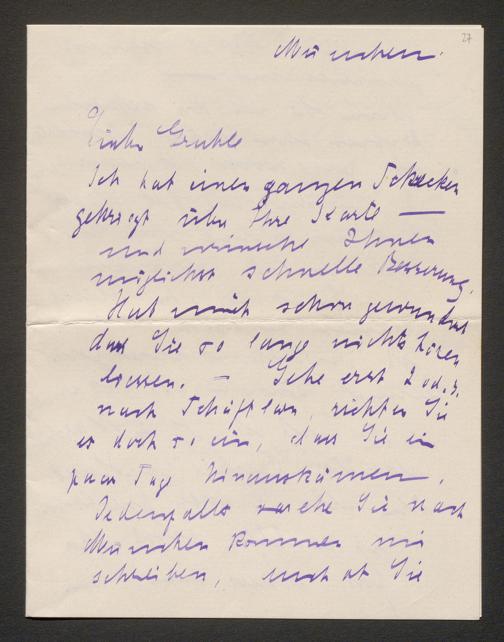 27
München.
Lieber Gruhle
Ich hab einen ganzen Schrecken
gekriegt über Ihre Karte —
und wünsche Ihnen
möglichst schnelle Besserung.
Hat mich schon gewundert
dass Sie so lang nichts hören
lassen. – Gehe erst 2 od. 3.
nach Schäftlarn, richten Sie
es doch so ein, dass Sie ein
paar Tag hinauskämen.
Jedenfalls Sie nach
München kommen mir
schreiben, Sie